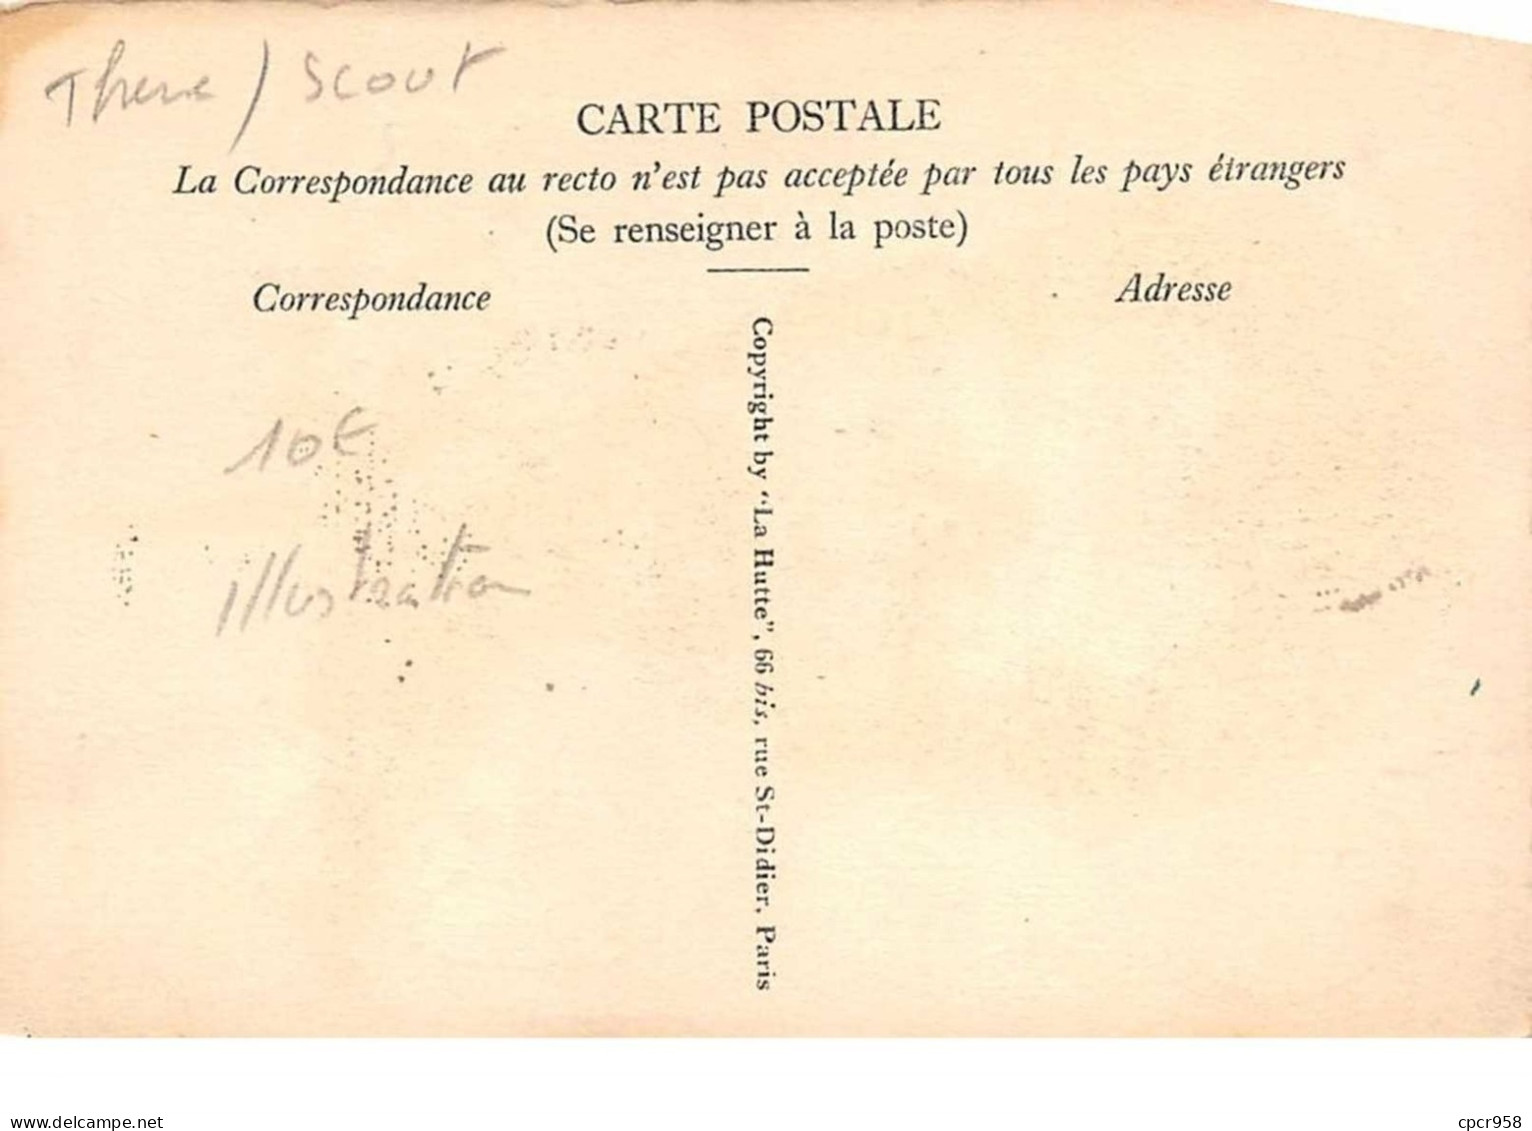 Theme / Scout
CARTE POSTALE
La Correspondance au recto n'est pas acceptée par tous les pays étrangers
(Se renseigner à la poste)
Correspondance
Adresse
10€
Illustration
Copyright by "La Hutte", 66 bis, rue St-Didier, Paris
delcampe.net
cpcr958